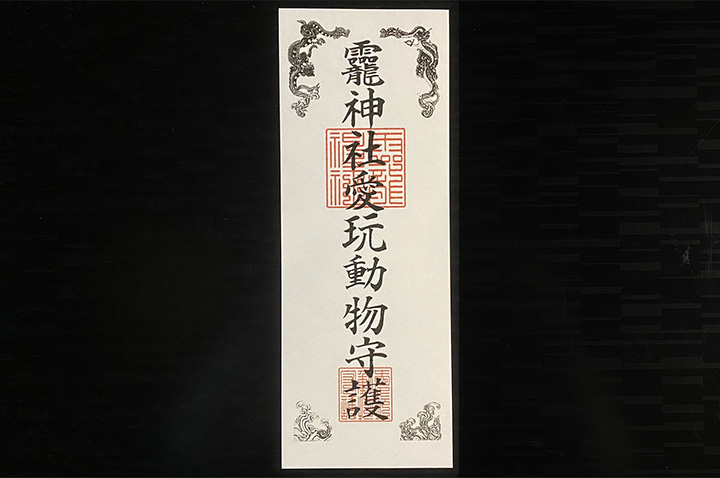 龗神社愛玩動物守護